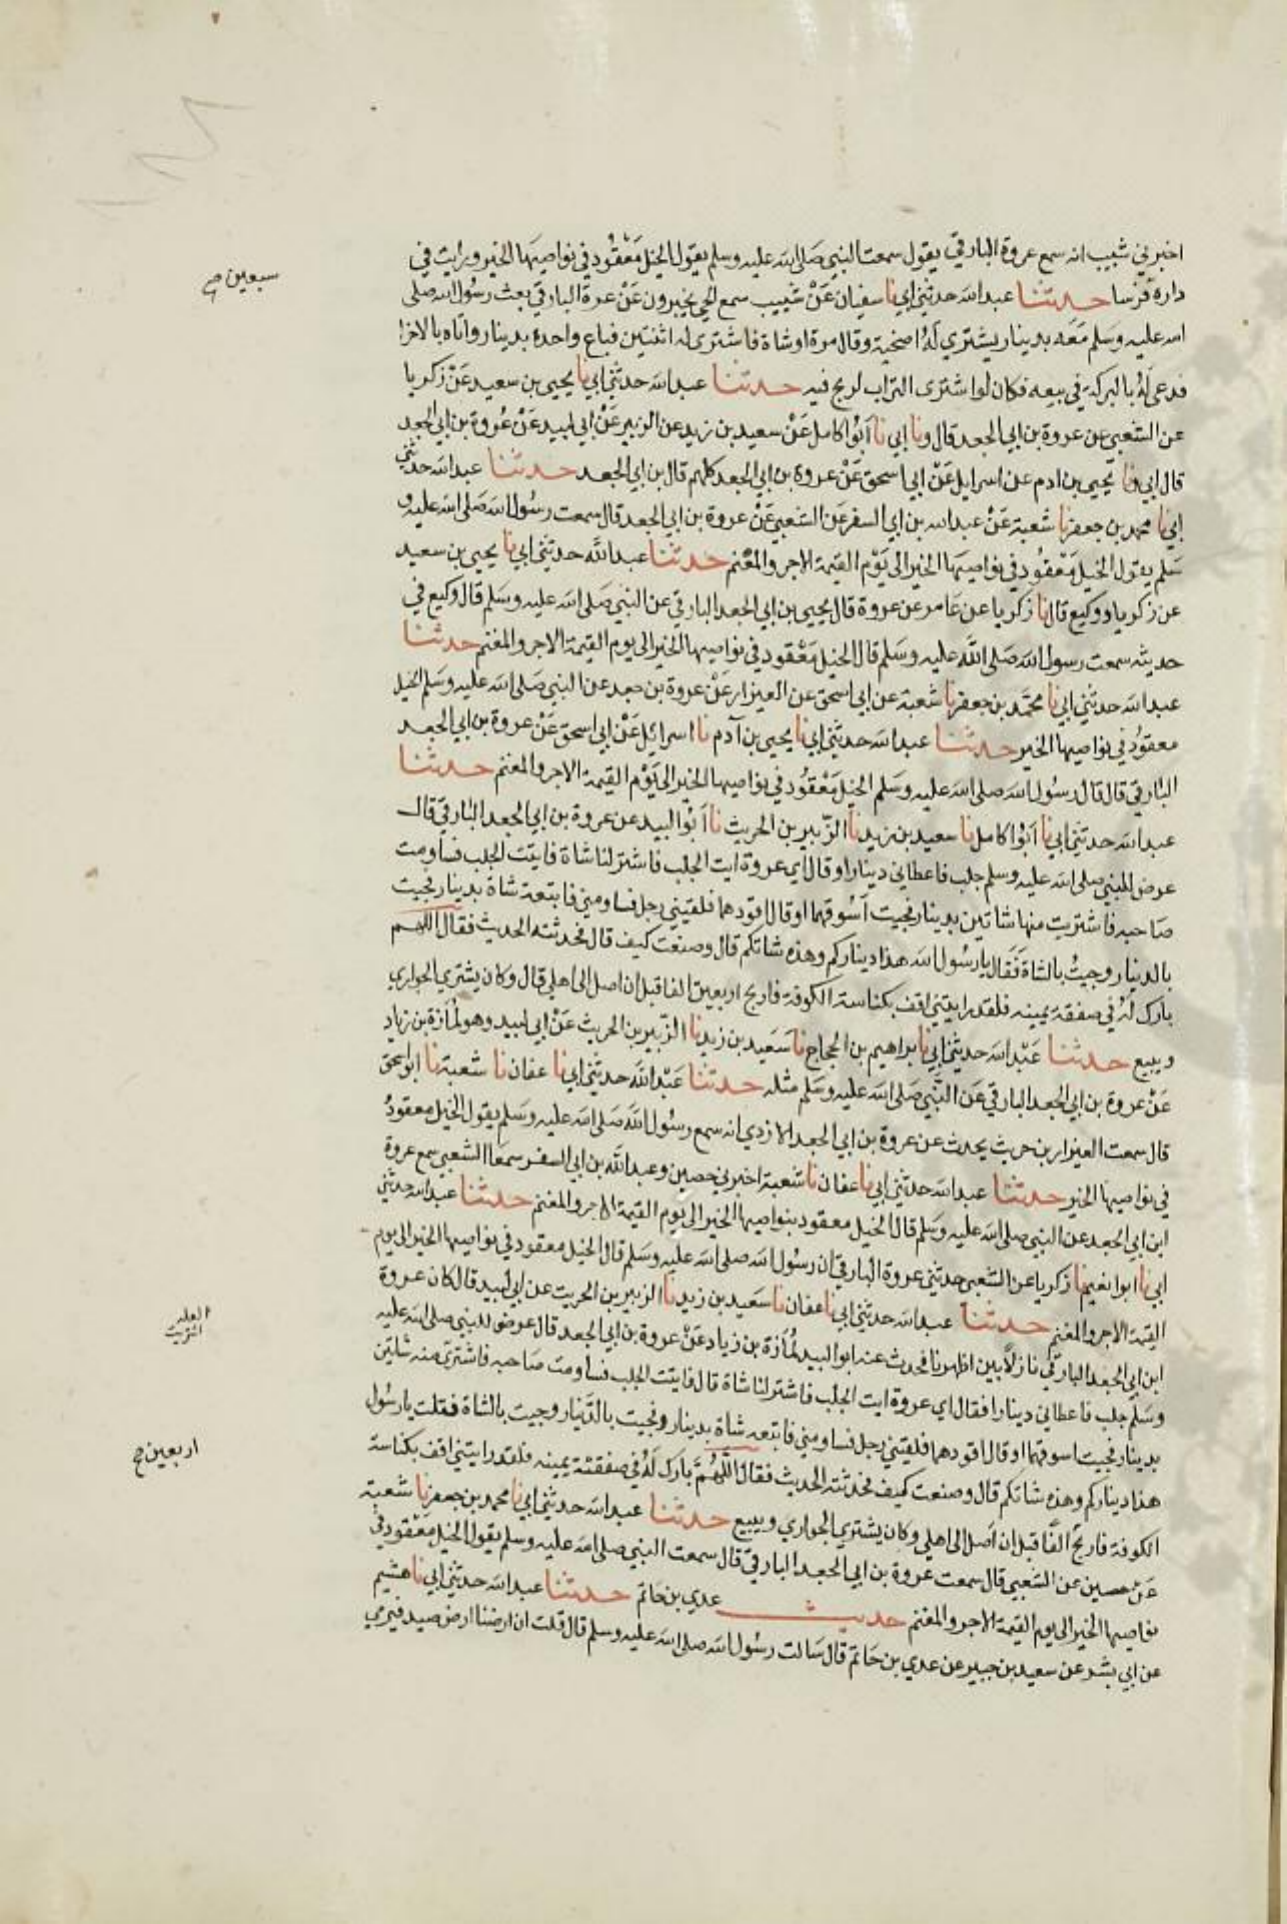 اخبرني شبيب انه سمع عروة البارقي يقول سمعت النبي صلى الله عليه وسلم يقول الخيل معقود في نواصيها الخير ورايت في
سبعين صح
داره فرسا حدثنا عبد الله حدثني ابي نا سفيان عن شبيب سمع الحي يخبرون عن عروة البارقي بعث رسول الله صلى
الله عليه وسلم معه بدينار يشتري له اضحية وقال مرة او شاة فاشترى له اثنتين فباع واحدة بدينار واتاه بالاخرا
فدعى له بالبركة في بيعه فكان لو اشترى التراب لربح فيه حدثنا عبد الله حدثني ابي نا يحيى بن سعيد عن زكريا
عن الشعبي عن عروة بن ابي الجعد قال ونا ابي نا ابوا كامل عن سعيد بن زيد عن الزبير عن ابي لبيد عن عروة بن ابي الجعد
قال ابي ونا يحيى بن ادم عن اسرايل عن ابي اسحق عن عروة بن ابي الجعد كلهم قال بن ابي الجعد حدثنا عبد الله حدثني
ابي نا محمد بن جعفر نا شعبة عن عبد الله بن ابي السفر عن الشعبي عن عروة بن ابي الجعد قال سمعت رسول الله صلى الله عليه و
سلم يقول الخيل معقود في نواصيها الخير الى يوم القيمة الاجر والمغنم حدثنا عبد الله حدثني ابي نا يحيى بن سعيد
عن زكريا ووكيع قال نا زكريا عن عامر عن عروة قال يحيى بن ابي الجعد البارقي عن النبي صلى الله عليه وسلم قال وكيع في
حديثه سمعت رسول الله صلى الله عليه وسلم قال الخيل معقود في نواصيها الخير الى يوم القيمة الاجر والمغنم حدثنا
عبد الله حدثني ابي نا محمد بن جعفر نا شعبة عن ابي اسحق عن العيزار عن عروة بن جعد عن النبي صلى الله عليه وسلم الخيل
معقود في نواصيها الخير حدثنا عبد الله حدثني ابي نا يحيى بن آدم نا اسرائيل عن ابي اسحق عن عروة بن ابي الجعد
البارقي قال قال رسول الله صلى الله عليه وسلم الخيل معقود في نواصيها الخير الى يوم القيمة الاجر والمغنم حدثنا
عبد الله حدثني ابي نا ابوا كامل نا سعيد بن زيد نا الزبير بن الحريث نا ابوا لبيد عن عروة بن ابي الجعد البارقي قال
عرض للنبي صلى الله عليه وسلم جلب فاعطاني دينارا وقال اي عروة ايت الجلب فاشتر لنا شاة فايتت الجلب فساومت
صاحبه فاشتريت منها شاتين بدينار فجيت اسوقهما او قال اقودهما فلقيني رجل فساومني فابتعة شاة بدينار فجيت
بالدينار وجيت بالشاة فقال يا رسول الله هذا ديناركم وهذه شاتكم قال وصنعت كيف قال فحدثته الحديث فقال اللهم
بارك له في صفقة يمينه فلقد رايتني اقف بكناسة الكوفة فاربح اربعين الفا قبل ان اصل الى اهلي قال وكان يشتري الجواري
ويبيع حدثنا عبد الله حدثني ابي نا ابراهيم بن الحجاج نا سعيد بن زيد نا الزبير بن الحريث عن ابي لبيد وهو لمازة بن زياد
عن عروة بن ابي الجعد البارقي عن النبي صلى الله عليه وسلم مثله حدثنا عبد الله حدثني ابي نا عفان نا شعبة نا ابو اسحق
قال سمعت العيزار بن حريث يحدث عن عروة بن ابي الجعد الازدي انه سمع رسول الله صلى الله عليه وسلم يقول الخيل معقود
في نواصيها الخير حدثنا عبد الله حدثني ابي نا عفان نا شعبة اخبرني حصين وعبد الله بن ابي السفر سمعا الشعبي سمع عروة
ابن ابي الجعد عن النبي صلى الله عليه وسلم قال الخيل معقود بنواصيها الخير الى يوم القيمة الاجر والمغنم حدثنا عبد الله حدثني
ابي نا ابوا نعيم نا زكريا عن الشعبي حدثني عروة البارقي ان رسول الله صلى الله عليه وسلم قال الخيل معقود في نواصيها الخير الى يوم
القيمة الاجر والمغنم حدثنا عبد الله حدثني ابي نا عفان نا سعيد بن زيد نا الزبير بن الحريت عن ابي لبيد قال كان عروة
ابن ابي الجعد البارقي نازلا بين اظهرنا فحدث عنه ابو البيد لمازة بن زياد عن عروة بن ابي الجعد قال عرض للنبي صلى الله عليه
وسلم جلب فاعطاني دينارا فقال اي عروة ايت الجلب فاشتر لنا شاة قال فايتت الجلب فساومت صاحبه فاشتريت منه شاتين
بدينار فجيت اسوقهما او قال اقودهما فلقيني رجل فساومني فابتعه شاة بدينار ونجيت بالدينار وجيت بالشاة فقلت يا رسول
اربعين صح
هذا ديناركم وهذه شاتكم قال وصنعت كيف فحدثته الحديث فقال اللهم بارك له في صفقته يمينه فلقد رايتني اقف بكناسة
الكوفة فاربح الفا قبل ان اصل الى اهلي وكان يشتري الجواري ويبيع حدثنا عبد الله حدثني ابي نا محمد بن جعفر نا شعبة
عن حصين عن الشعبي قال سمعت عروة بن ابي الجعد البارقي قال سمعت النبي صلى الله عليه وسلم يقول الخيل معقود في
نواصيها الخير الى يوم القيمة الاجر والمغنم حديث عدي بن حاتم حدثنا عبد الله حدثني ابي نا هشيم
عن ابي بشر عن سعيد بن جبير عن عدي بن حاتم قال سالت رسول الله صلى الله عليه وسلم قال قلت ان ارضنا ارض صيد فيرمي